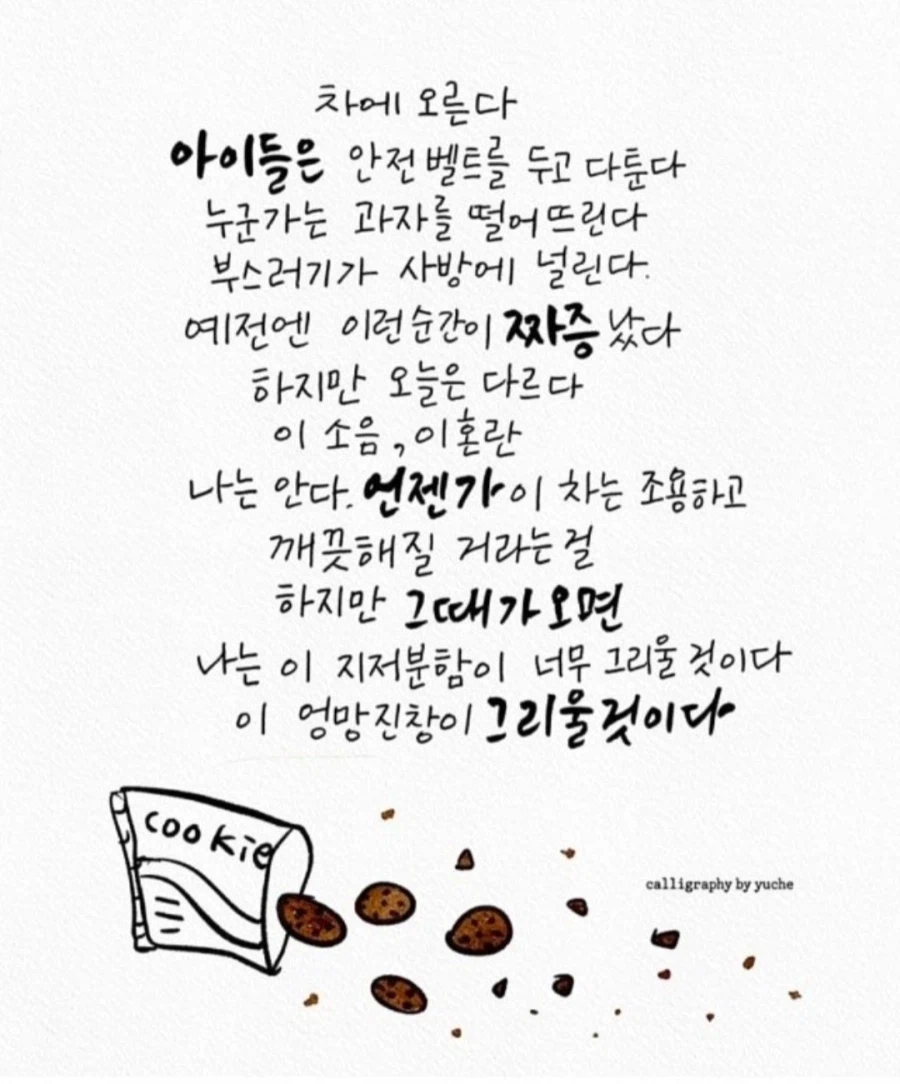 차에 오른다
아이들은 안전벨트를 두고 다툰다
누군가는 과자를 떨어뜨린다
부스러기가 사방에 널린다.
예전엔 이런 순간이 짜증났다
하지만 오늘은 다르다
이 소음, 이 혼란
나는 안다. 언젠가 이 차는 조용하고
깨끗해질 거라는 걸
하지만 그때가 오면
나는 이 지저분함이 너무 그리울 것이다
이 엉망진창이 그리울 것이다
cookie
calligraphy by yuche